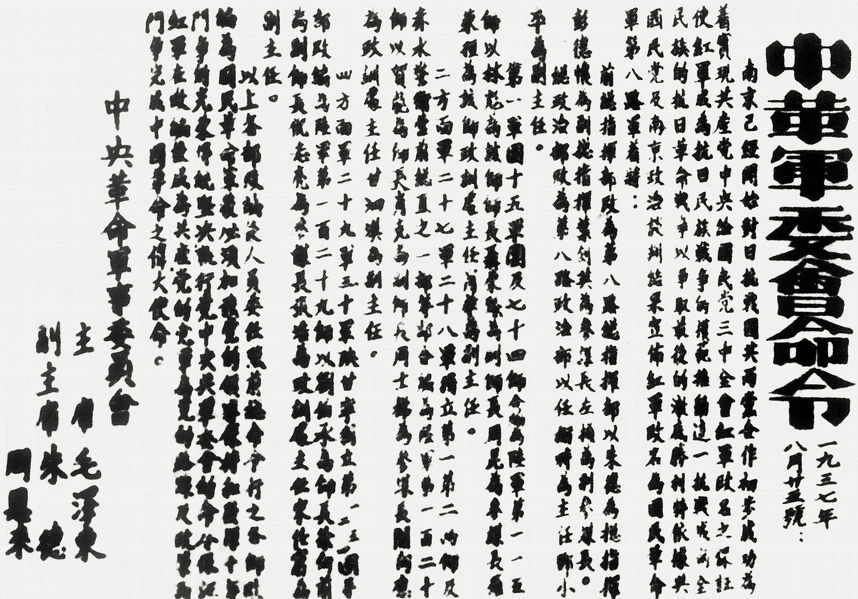 中革軍委會命令
一九三七年
八月廿五號：
南京已經開始對日抗戰國共兩黨合作初步成功為
着實現共產黨中央給國民黨三中全會紅軍改名之保証
使紅軍成為抗日民族戰爭的模範推動這一抗戰成為全
民族的抗日革命戰爭以爭取最後的澈底勝利特依據與
國民黨及南京政治談判結果宣佈紅軍改名為國民革命
軍第八路軍着將：
前總指揮部改為第八路總指揮部以朱德為總指揮
彭德懷為副總指揮葉劍英為參謀長左權為副參謀長。
總政治部改為第八路政治部以任弼時為主任鄧小
平為副主任。
第一軍團十五軍團及七十四師合編為陸軍第一一五
師以林彪為該師師長聶榮臻為副師長周昆為參謀長羅
榮桓為該師政訓處主任蕭華為副主任。
二方面軍二十七軍二十八軍獨立第一第二兩師及
赤水警衛營前總直之一部等部合編為陸軍第一百二十
師以賀龍為師長蕭克為副師長周士梯為參謀長關向應
為政訓處主任甘泗淇為副主任。
四方面軍二十九軍三十軍陝甘寧獨立第一二三四團等
部改編為陸軍第一百二十九師以劉伯承為師長徐向前
為副師長倪志亮為參謀長張浩為政訓處主任宋任窮為
副主任。
以上各部改編後人員委任照前總命令行之各師改
編為國民革命軍後必須加強黨的領導保持和發揚十年
鬥爭的光榮傳統堅決執行黨中央與軍委會的命令保証
紅軍在改編後成為共產黨的黨軍為黨的路線及政策而
鬥爭完成中國革命之偉大使命。
中央革命軍事委員會
主席毛澤東
副主席朱德
周恩來